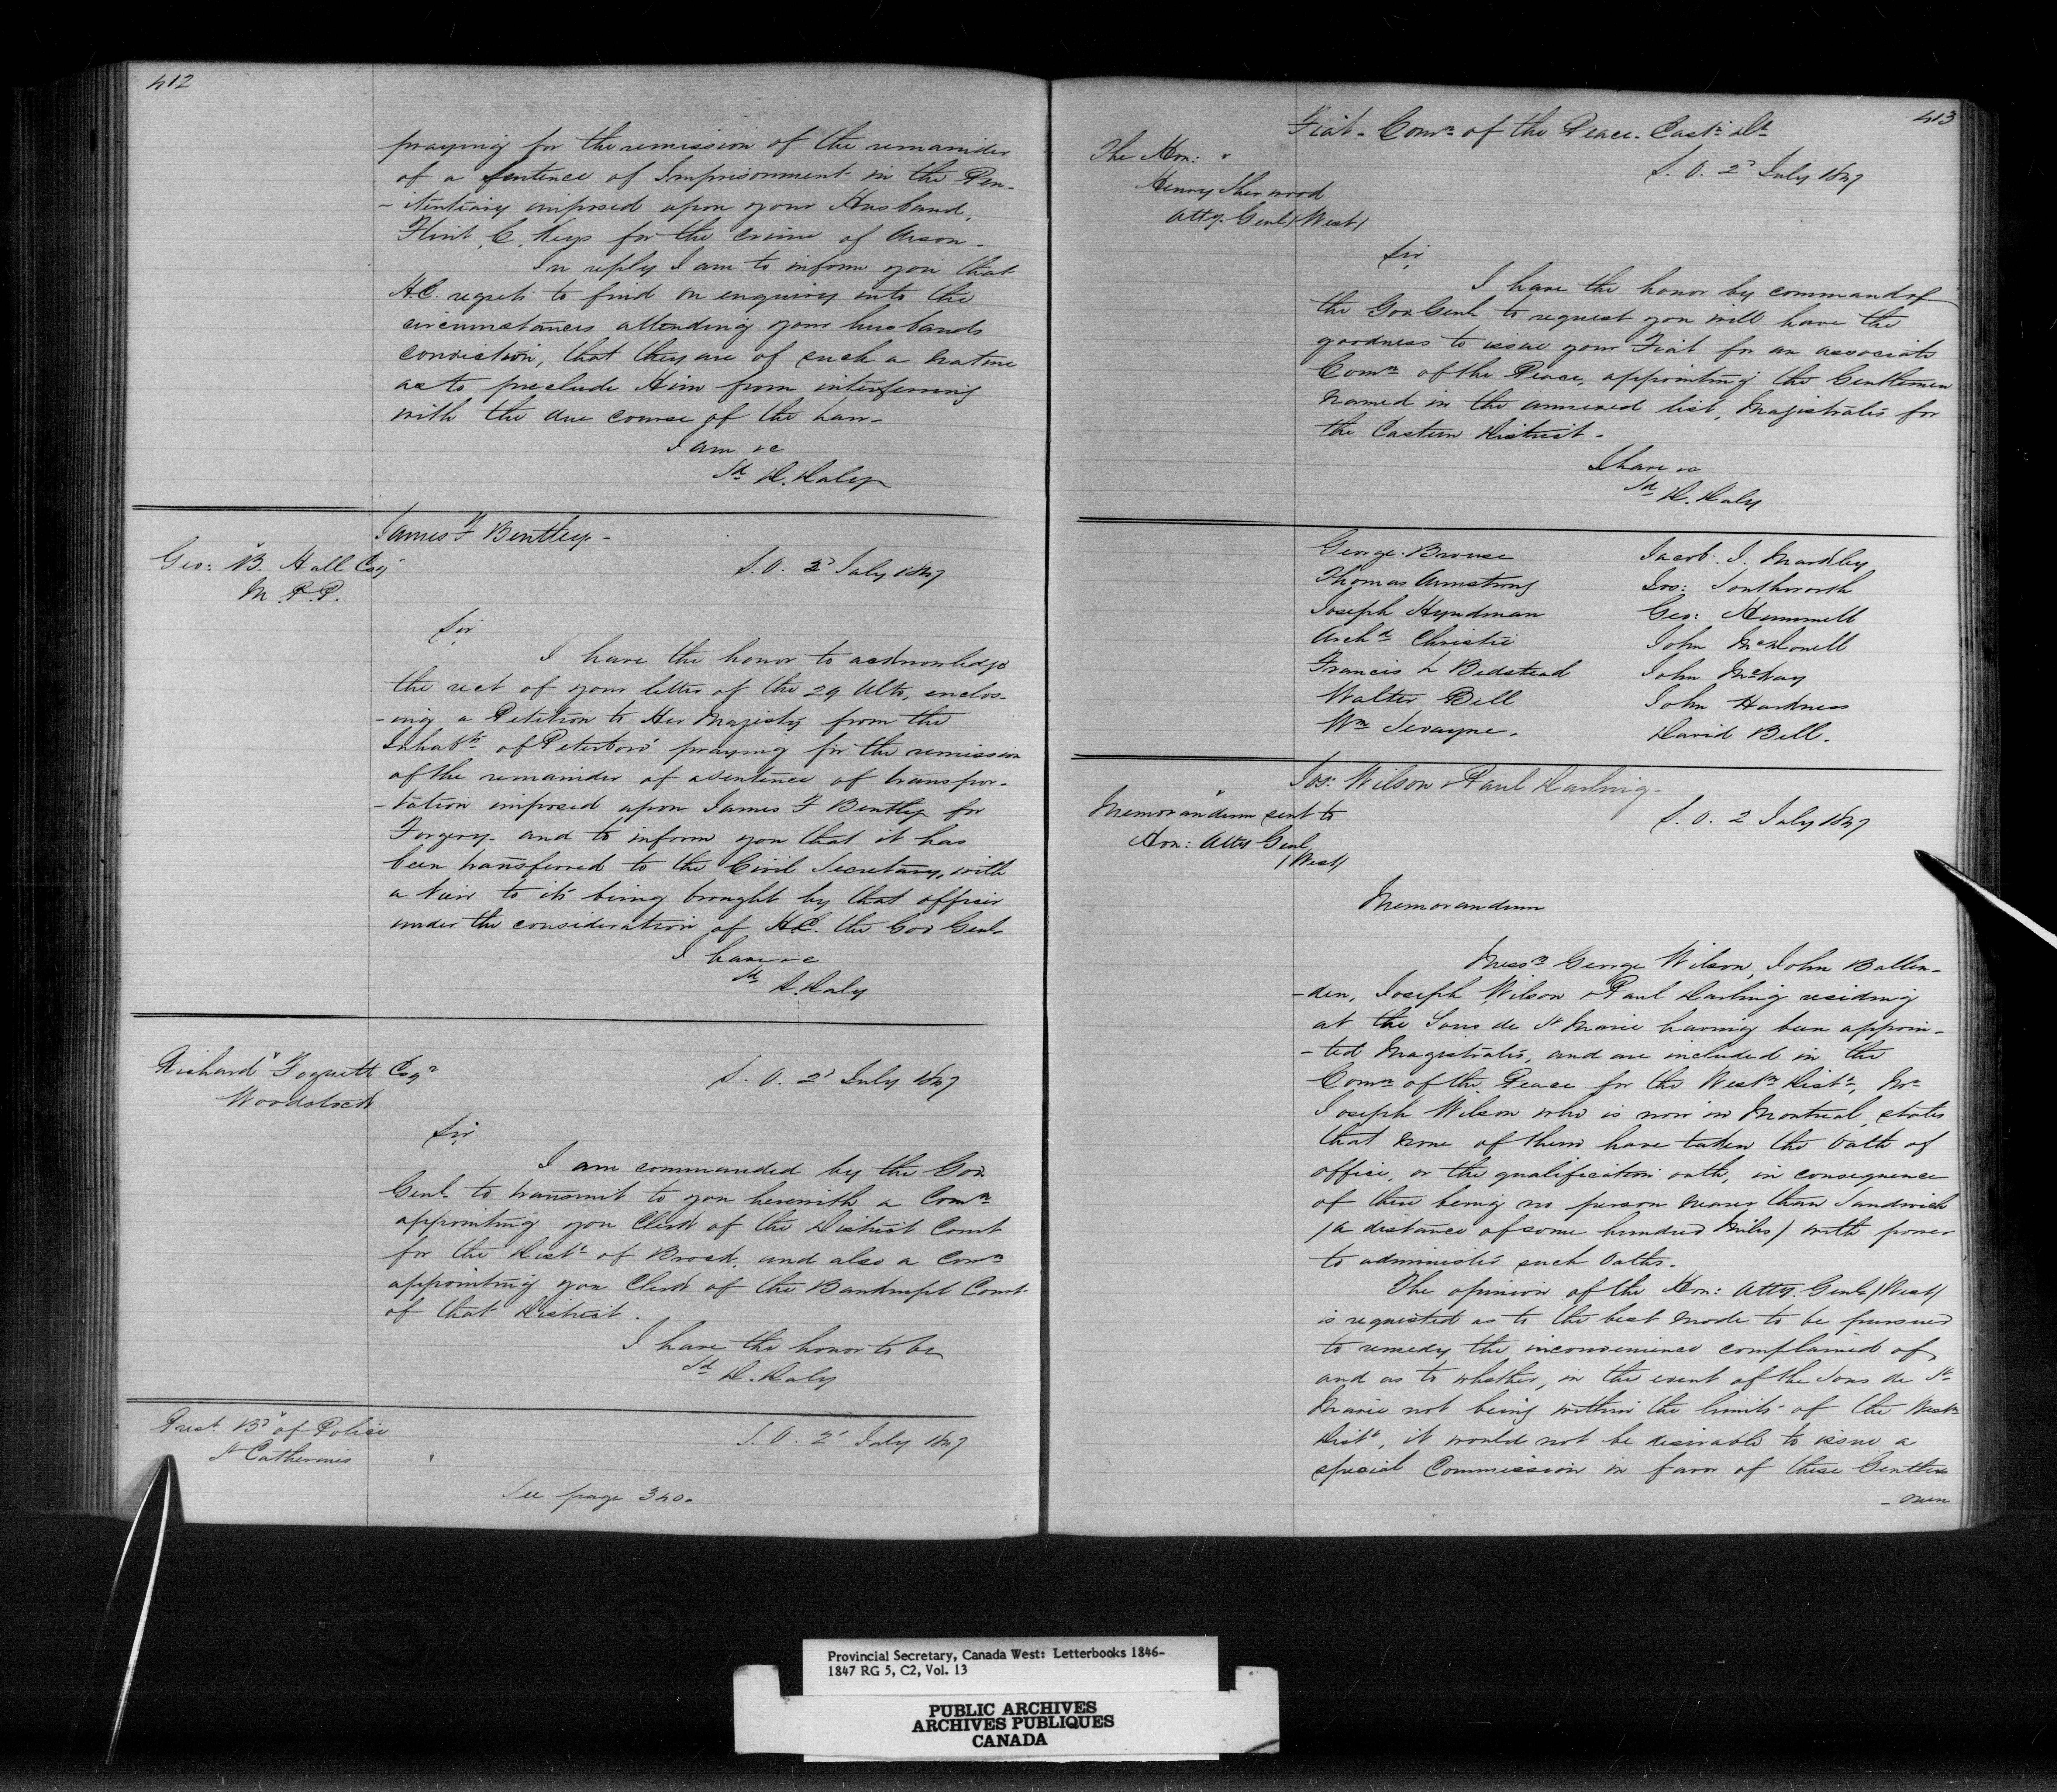 412
praying for the remission of the remainder
of a sentence of Imprisonment in the Pen-
-itentiary imposed upon your Husband,
Flint C. Keys for the crime of Arson -
In reply I am to inform you that
H.E. regrets to find on enquiry into the
circumstances attending your husbands
conviction, that they are of such a nature
as to preclude Him from interferring
with the due course of the Law -
I am &c
Sd D. Daly
James F Bentley -
Geo: B. Hall Esqr
M.P.P.
S.O. 2d July 1847
Sir
I have the honor to acknowledge
the rect of your letter of the 29 Ulto, enclos-
-ing a Petition to Her Majesty from the
Inhabts of Peterboro' praying for the remission
of the remainder of a sentence of transpor-
-tation imposed upon James F Bentley for
Forgery - and to inform you that it has
been transferred to the Civil Secretary, with
a view to its being brought by that officer
under the consideration of H.E. the Gov Genl -
I have &c
Sd D. Daly
Richard Esqr
Woodstock
S.O. 2d July 1847
Sir
I am commanded by the Gov
Genl to transmit to you herewith a Comn
appointing you Clerk of the District Court
for the Distt of Brock, and also a Comn
appointing you Clerk of the Bankrupt Court
of that District.
I have the honor to be
Sd D. Daly
Prest. Bd of Police
St Catherines
S.O. 2d July 1847
See page 340.
413
Fiat - Comn of the Peace - Eastn Dt
The Hon:
Henry Sherwood
Atty. Genl (West)
S.O. 2d July 1847
Sir
I have the honor by command of
the Gov Genl to request you will have the
goodness to issue your Fiat for an associate
Comn of the Peace, appointing the Gentlemen
named in the annexed list, Magistrates for
the Eastern District -
I have &c
Sd D. Daly
George Brouse
Thomas Armstrong
Joseph Hyndman
Archd Christie
Francis L Bedstead
Walter Bell
Wm
Jacob. I. Markley
Jos: Southworth
Geo: Hummell
John McDonell
John McVay
John Harkness
David Bell.
Jos: Wilson & Paul Darling -
Memorandum sent to
Hon: Atty Genl
(West)
S.O. 2 July 1847
Memorandum
Messrs George Wilson, John Ballen-
-den, Joseph Wilson & Paul Darling residing
at the Sous de St Marie having been appoin-
-ted Magistrates, and are included in the
Comn of the Peace for the Westn Distt, Mr
Joseph Wilson who is now in Montreal, states
that none of them have taken the Oath of
office, or the qualification oath, in consequence
of there being no person nearer than Sandwich
(a distance of some hundred Miles) with power
to administer such Oaths.
The opinion of the Hon: Atty. Genl (West)
is requested as to the best mode to be pursued
to remedy the inconvenience complained of,
and as to whether, in the event of the Sous de St
Marie not being within the limits of the Westn
Distt, it would not be desirable to issue a
special Commission in favor of these Gentle
- men
Provincial Secretary, Canada West: Letterbooks 1846-
1847 RG 5, C2, Vol. 13
PUBLIC ARCHIVES
ARCHIVES PUBLIQUES
CANADA